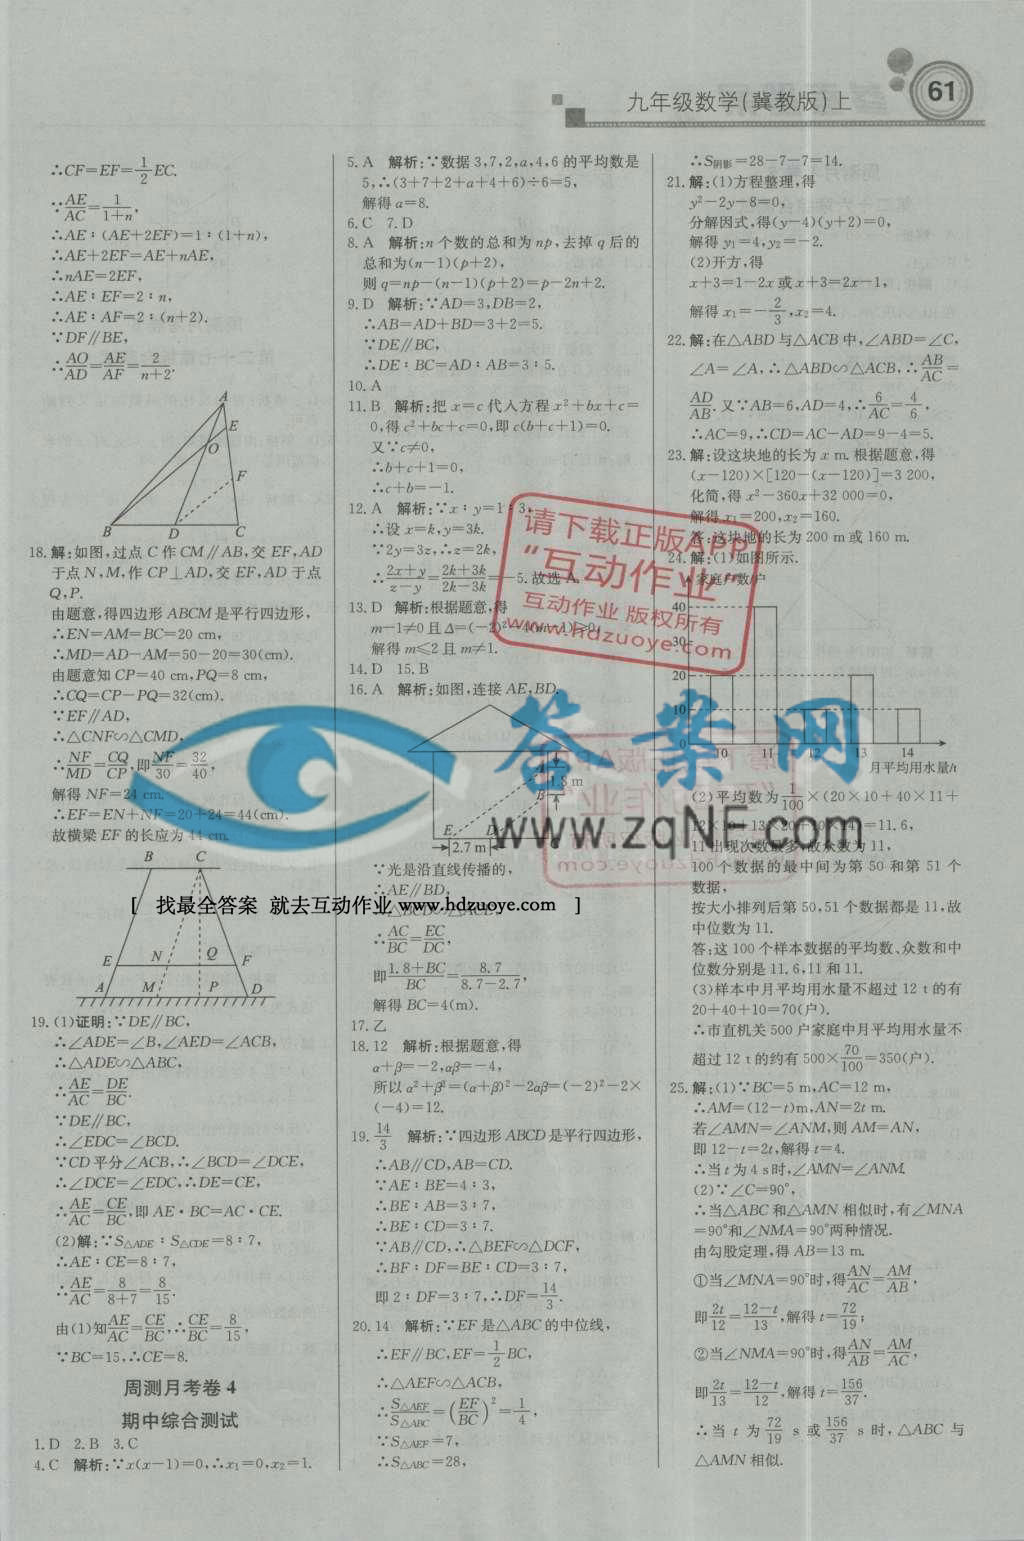 九年级数学(冀教版)上
61
∴CF=EF=1/2EC.
∵AE/AC=1/(1+n),
∴AE∶(AE+2EF)=1∶(1+n),
∴AE+2EF=AE+nAE,
∴nAE=2EF,
∴AE∶EF=2∶n,
∴AE∶AF=2∶(n+2).
∵DF∥BE,
∴AO/AD=AE/AF=2/(n+2).
A
E
O
F
B D C
18.解:如图,过点 C 作 CM∥AB,交 EF,AD
于点 N,M,作 CP⊥AD,交 EF,AD 于点
Q,P.
由题意,得四边形 ABCM 是平行四边形,
∴EN=AM=BC=20 cm,
∴MD=AD-AM=50-20=30(cm).
由题意知 CP=40 cm,PQ=8 cm,
∴CQ=CP-PQ=32(cm).
∵EF∥AD,
∴△CNF∽△CMD,
∴NF/MD=CQ/CP,即NF/30=32/40,
解得 NF=24 cm.
∴EF=EN+NF=20+24=44(cm).
故横梁 EF 的长应为 44 cm.
B C
E N Q F
A M P D
19.(1)证明:∵DE∥BC,
∴∠ADE=∠B,∠AED=∠ACB,
∴△ADE∽△ABC,
∴AE/AC=DE/BC.
∵DE∥BC,
∴∠EDC=∠BCD.
∵CD 平分∠ACB,∴∠BCD=∠DCE,
∴∠DCE=∠EDC,∴DE=CE,
∴AE/AC=CE/BC,即 AE·BC=AC·CE.
(2)解:∵S△ADE∶S△CDE=8∶7,
∴AE∶CE=8∶7,
∴AE/AC=8/(8+7)=8/15.
由(1)知AE/AC=CE/BC,∴CE/BC=8/15,
∵BC=15,∴CE=8.
周测月考卷 4
期中综合测试
1.D 2.B 3.C
4.C 解析:∵x(x-1)=0,∴x1=0,x2=1.
5.A 解析:∵数据 3,7,2,a,4,6 的平均数是
5,∴(3+7+2+a+4+6)÷6=5,
解得 a=8.
6.C 7.D
8.A 解析:n 个数的总和为 np,去掉 q 后的
总和为(n-1)(p+2),
则 q=np-(n-1)(p+2)=p-2n+2.
9.D 解析:∵AD=3,DB=2,
∴AB=AD+BD=3+2=5.
∵DE∥BC,
∴DE∶BC=AD∶AB=3∶5.
10.A
11.B 解析:把 x=c 代入方程 x²+bx+c=
0,得 c²+bc+c=0,即 c(b+c+1)=0.
又∵c≠0,
∴b+c+1=0,
∴c+b=-1.
12.A 解析:∵x∶y=1∶3,
∴设 x=k,y=3k.
∵2y=3z,∴z=2k,
∴(2x+y)/(z-y)=(2k+3k)/(2k-3k)=-5.故选 A.
13.D 解析:根据题意,得
m-1≠0 且 Δ=(-2)²-4(m-1)≥0,
解得 m≤2 且 m≠1.
14.D 15.B
16.A 解析:如图,连接 AE,BD.
A
1.8 m
B
E D C
2.7 m
∵光是沿直线传播的,
∴AE∥BD,
∴△BCD∽△ACE,
∴AC/BC=EC/DC,
即(1.8+BC)/BC=8.7/(8.7-2.7),
解得 BC=4(m).
17.乙
18.12 解析:根据题意,得
α+β=-2,αβ=-4,
所以 α²+β²=(α+β)²-2αβ=(-2)²-2×
(-4)=12.
19.14/3 解析:∵四边形 ABCD 是平行四边形,
∴AB∥CD,AB=CD.
∵AE∶BE=4∶3,
∴BE∶AB=3∶7,
∴BE∶CD=3∶7.
∵AB∥CD,∴△BEF∽△DCF,
∴BF∶DF=BE∶CD=3∶7,
即 2∶DF=3∶7,∴DF=14/3.
20.14 解析:∵EF 是△ABC 的中位线,
∴EF∥BC,EF=1/2BC,
∴△AEF∽△ACB,
∴S△AEF/S△ABC=(EF/BC)²=1/4,
∵S△AEF=7,
∴S△ABC=28,
∴S阴影=28-7-7=14.
21.解:(1)方程整理,得
y²-2y-8=0,
分解因式,得(y-4)(y+2)=0,
解得 y1=4,y2=-2.
(2)开方,得
x+3=1-2x 或 x+3=2x-1,
解得 x1=-2/3,x2=4.
22.解:在△ABD 与△ACB 中,∠ABD=∠C,
∠A=∠A,∴△ABD∽△ACB,∴AB/AC=
AD/AB.又∵AB=6,AD=4,∴6/AC=4/6,
∴AC=9,∴CD=AC-AD=9-4=5.
23.解:设这块地的长为 x m.根据题意,得
(x-120)×[120-(x-120)]=3 200,
化简,得 x²-360x+32 000=0,
解得 x1=200,x2=160.
答:这块地的长为 200 m 或 160 m.
24.解:(1)如图所示.
家庭户数/户
40
30
20
10
0 10 11 12 13 14
月平均用水量/t
(2)平均数为1/100×(20×10+40×11+
12×10+13×20+10×14)=11.6,
11 出现次数最多,故众数为 11,
100 个数据的最中间为第 50 和第 51 个
数据,
按大小排列后第 50,51 个数据都是 11,故
中位数为 11.
答:这 100 个样本数据的平均数、众数和中
位数分别是 11.6,11 和 11.
(3)样本中月平均用水量不超过 12 t 的有
20+40+10=70(户).
∴市直机关 500 户家庭中月平均用水量不
超过 12 t 的约有 500×70/100=350(户).
25.解:(1)∵BC=5 m,AC=12 m,
∴AM=(12-t)m,AN=2t m.
若∠AMN=∠ANM,则 AM=AN,
即 12-t=2t,解得 t=4.
∴当 t 为 4 s 时,∠AMN=∠ANM.
(2)∵∠C=90°,
∴当△ABC 和△AMN 相似时,有∠MNA
=90°和∠NMA=90°两种情况.
由勾股定理,得 AB=13 m.
①当∠MNA=90°时,得AN/AC=AM/AB,
即2t/12=(12-t)/13,解得 t=72/19;
②当∠NMA=90°时,得AN/AB=AM/AC,
即2t/13=(12-t)/12,解得 t=156/37.
∴当 t 为 72/19 s 或 156/37 s 时,△ABC 与
△AMN 相似.
请下载正版APP
“互动作业”
互动作业 版权所有
www.hdzuoye.com
答案网
www.zqNF.com
[ 找最全答案 就去互动作业 www.hdzuoye.com ]